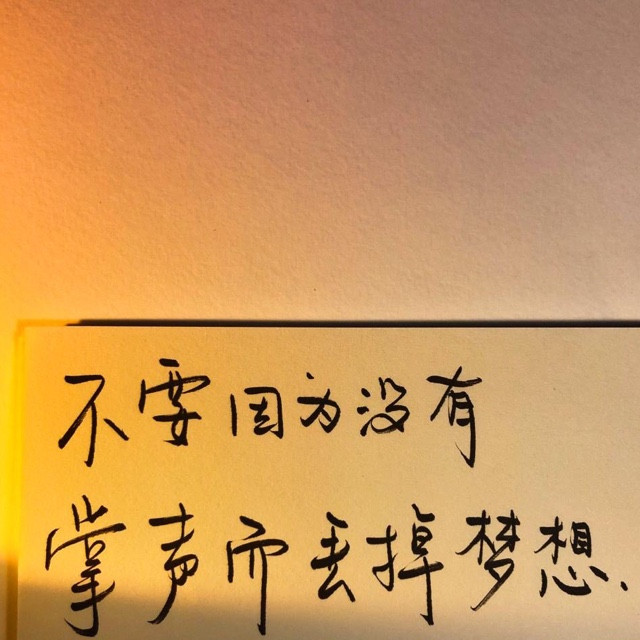 不要因为没有
掌声而丢掉梦想.